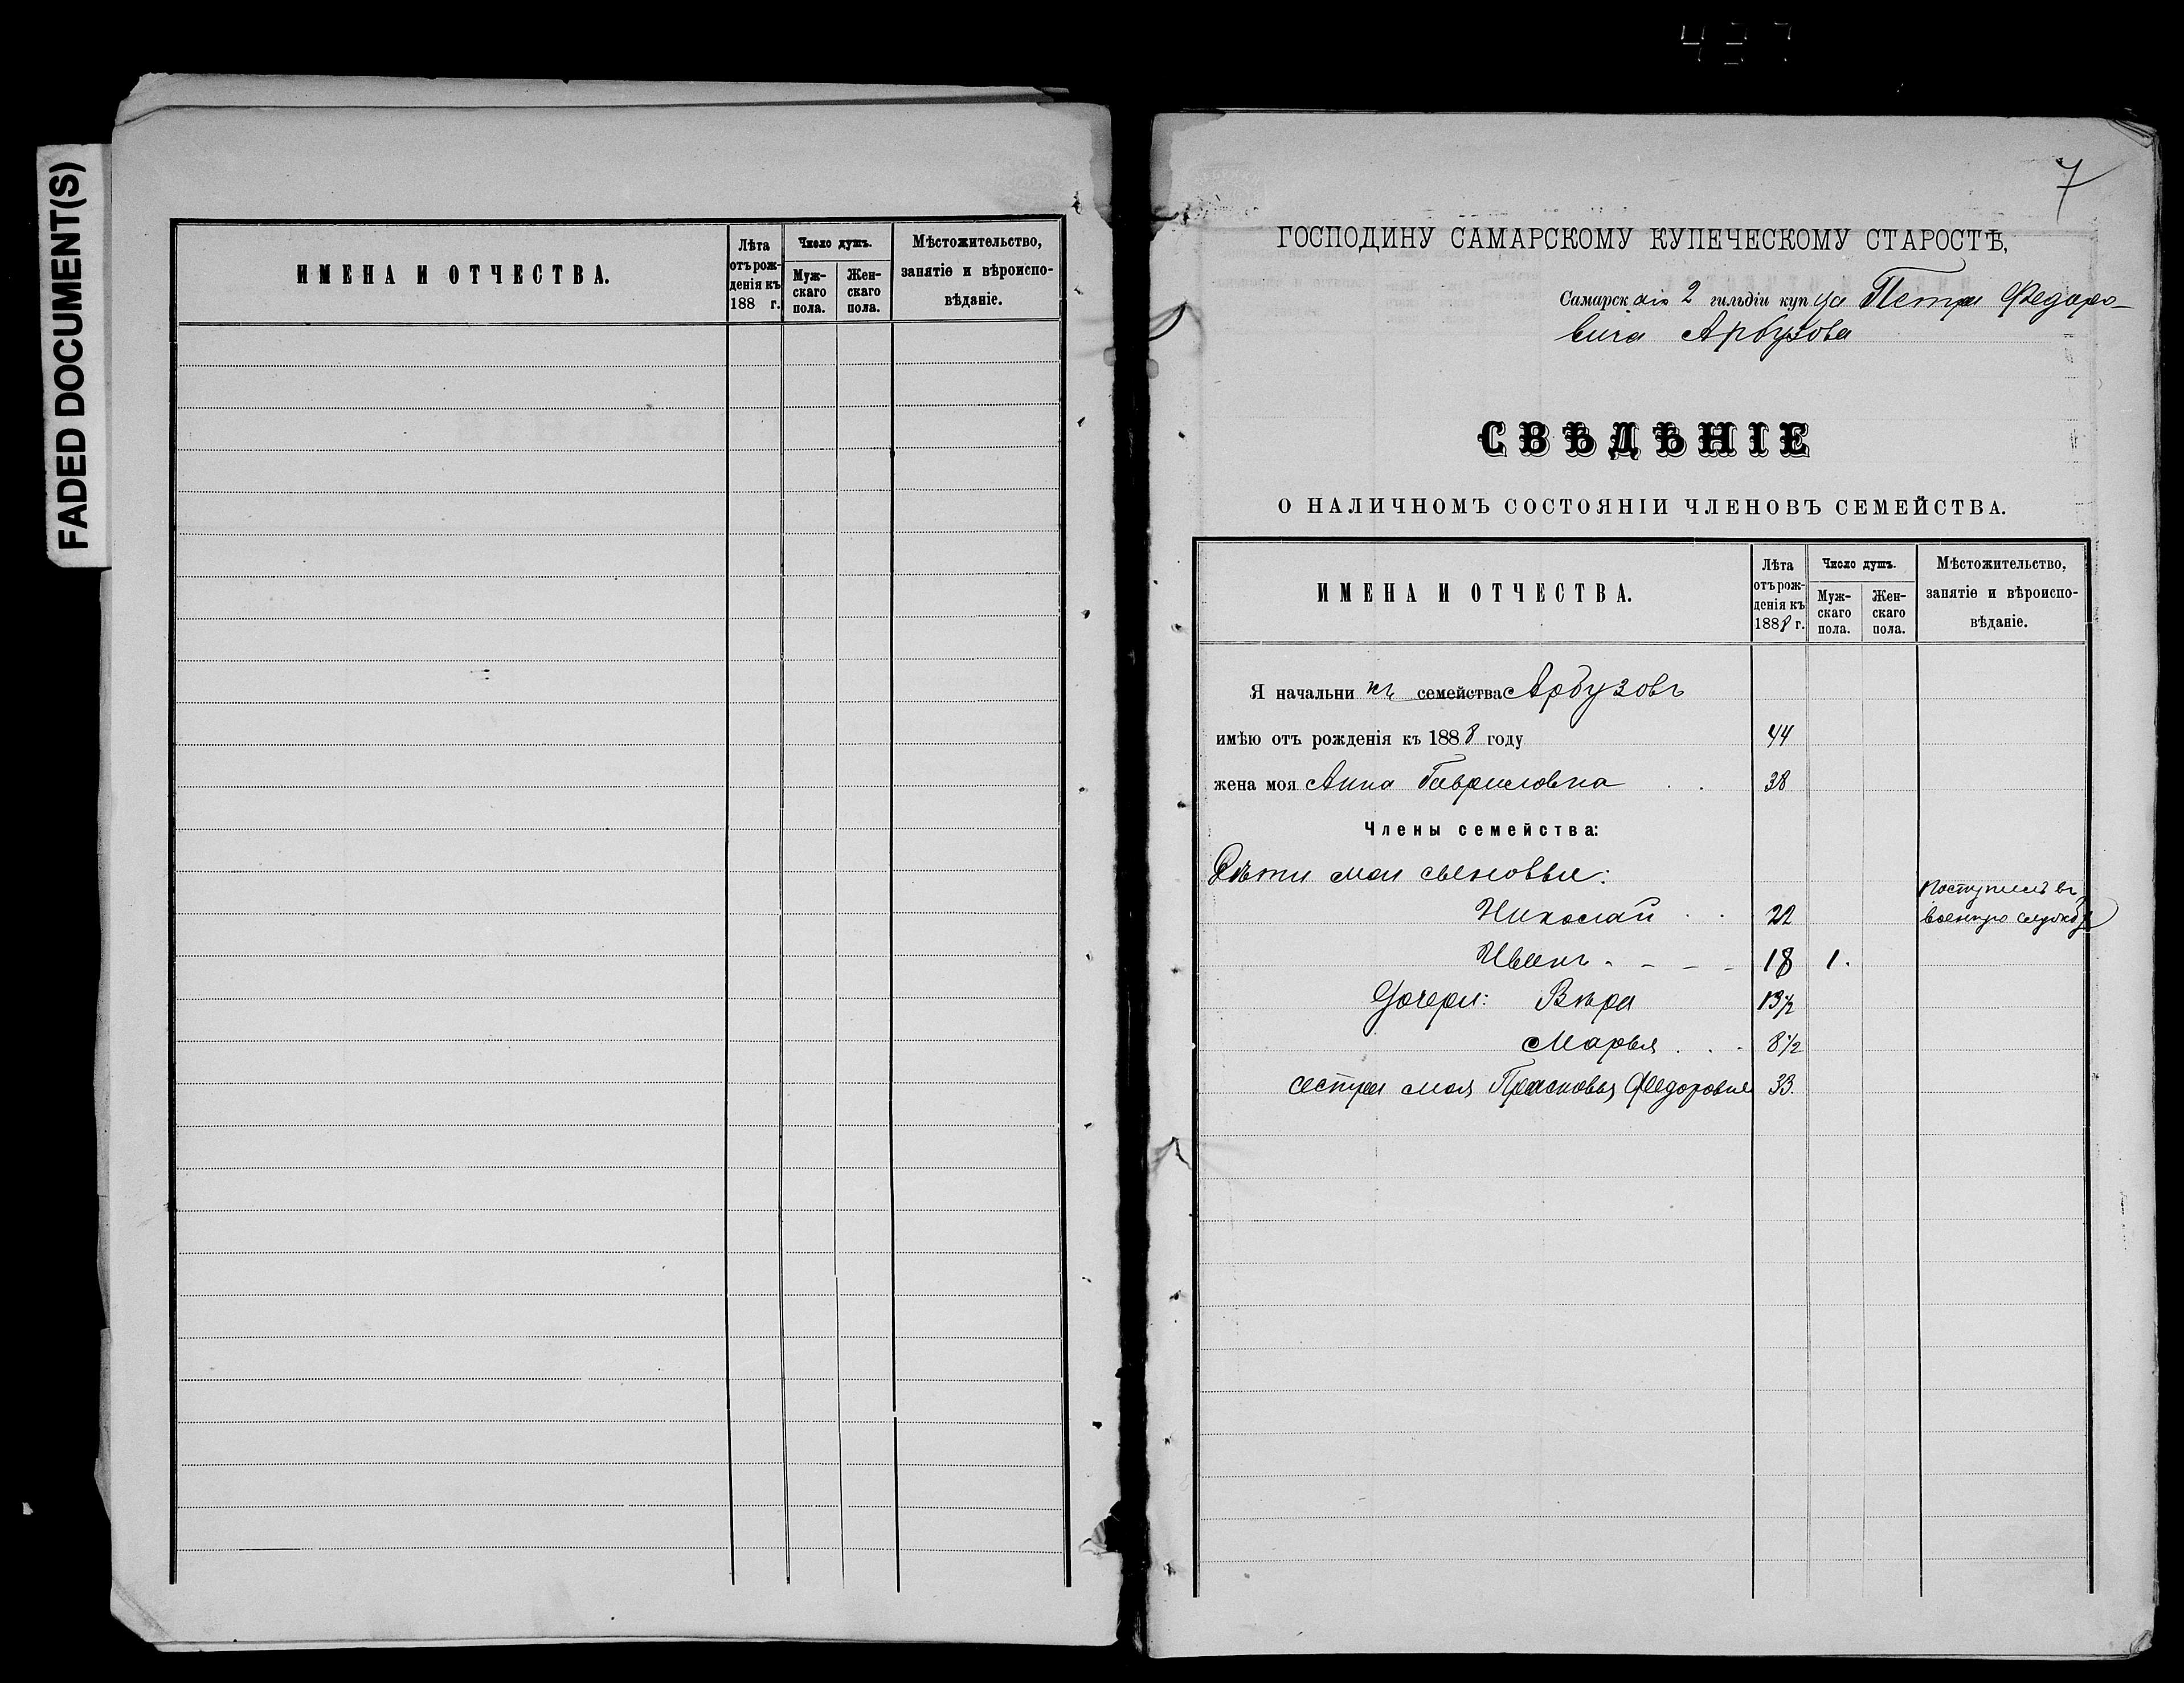 FADED DOCUMENT(S)
ИМЕНА И ОТЧЕСТВА.
Лѣта отъ рож-
денія къ
188 г.
Число душъ.
Муж-
скаго
пола.
Жен-
скаго
пола.
Мѣстожительство,
занятіе и вѣроиспо-
вѣданіе.
7
ГОСПОДИНУ САМАРСКОМУ КУПЕЧЕСКОМУ СТАРОСТѢ,
Самарскаго 2 гильдіи купца Петра Федоро-
вича Арбузова
СВѢДѢНІЕ
О НАЛИЧНОМЪ СОСТОЯНІИ ЧЛЕНОВЪ СЕМЕЙСТВА.
ИМЕНА И ОТЧЕСТВА.
Лѣта
отъ рож-
денія къ
1888 г.
Число душъ.
Муж-
скаго
пола.
Жен-
скаго
пола.
Мѣстожительство,
занятіе и вѣроиспо-
вѣданіе.
Я начальникъ семейства Арбузовъ
имѣю отъ рожденія къ 1888 году 44
жена моя Анна Гавриловна 38
Члены семейства:
Дѣти мои сыновья:
Николай 22 Поступилъ въ
военную службу
Иванъ 18 1.
Дочери: Вѣра 13 1/2
Марья 8 1/2
сестра моя Прасковья Федоровна 33.